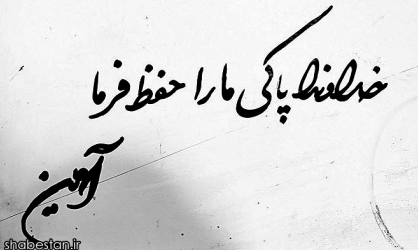 خداوندا پاکی ما را حفظ فرما
آمین
shabestan.ir